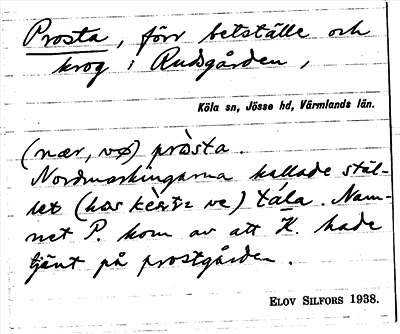 Prosta, förr betställe och
krog i Rudsgården,
Köla sn, Jösse hd, Värmlands län.
(nær, vø) pròsta.
Nordmarkingarna kallade stäl-
let (hos ve) tåla. Nam-
net P. kom av att K. hade
tjänt på prostgården.
ELOV SILFORS 1938.